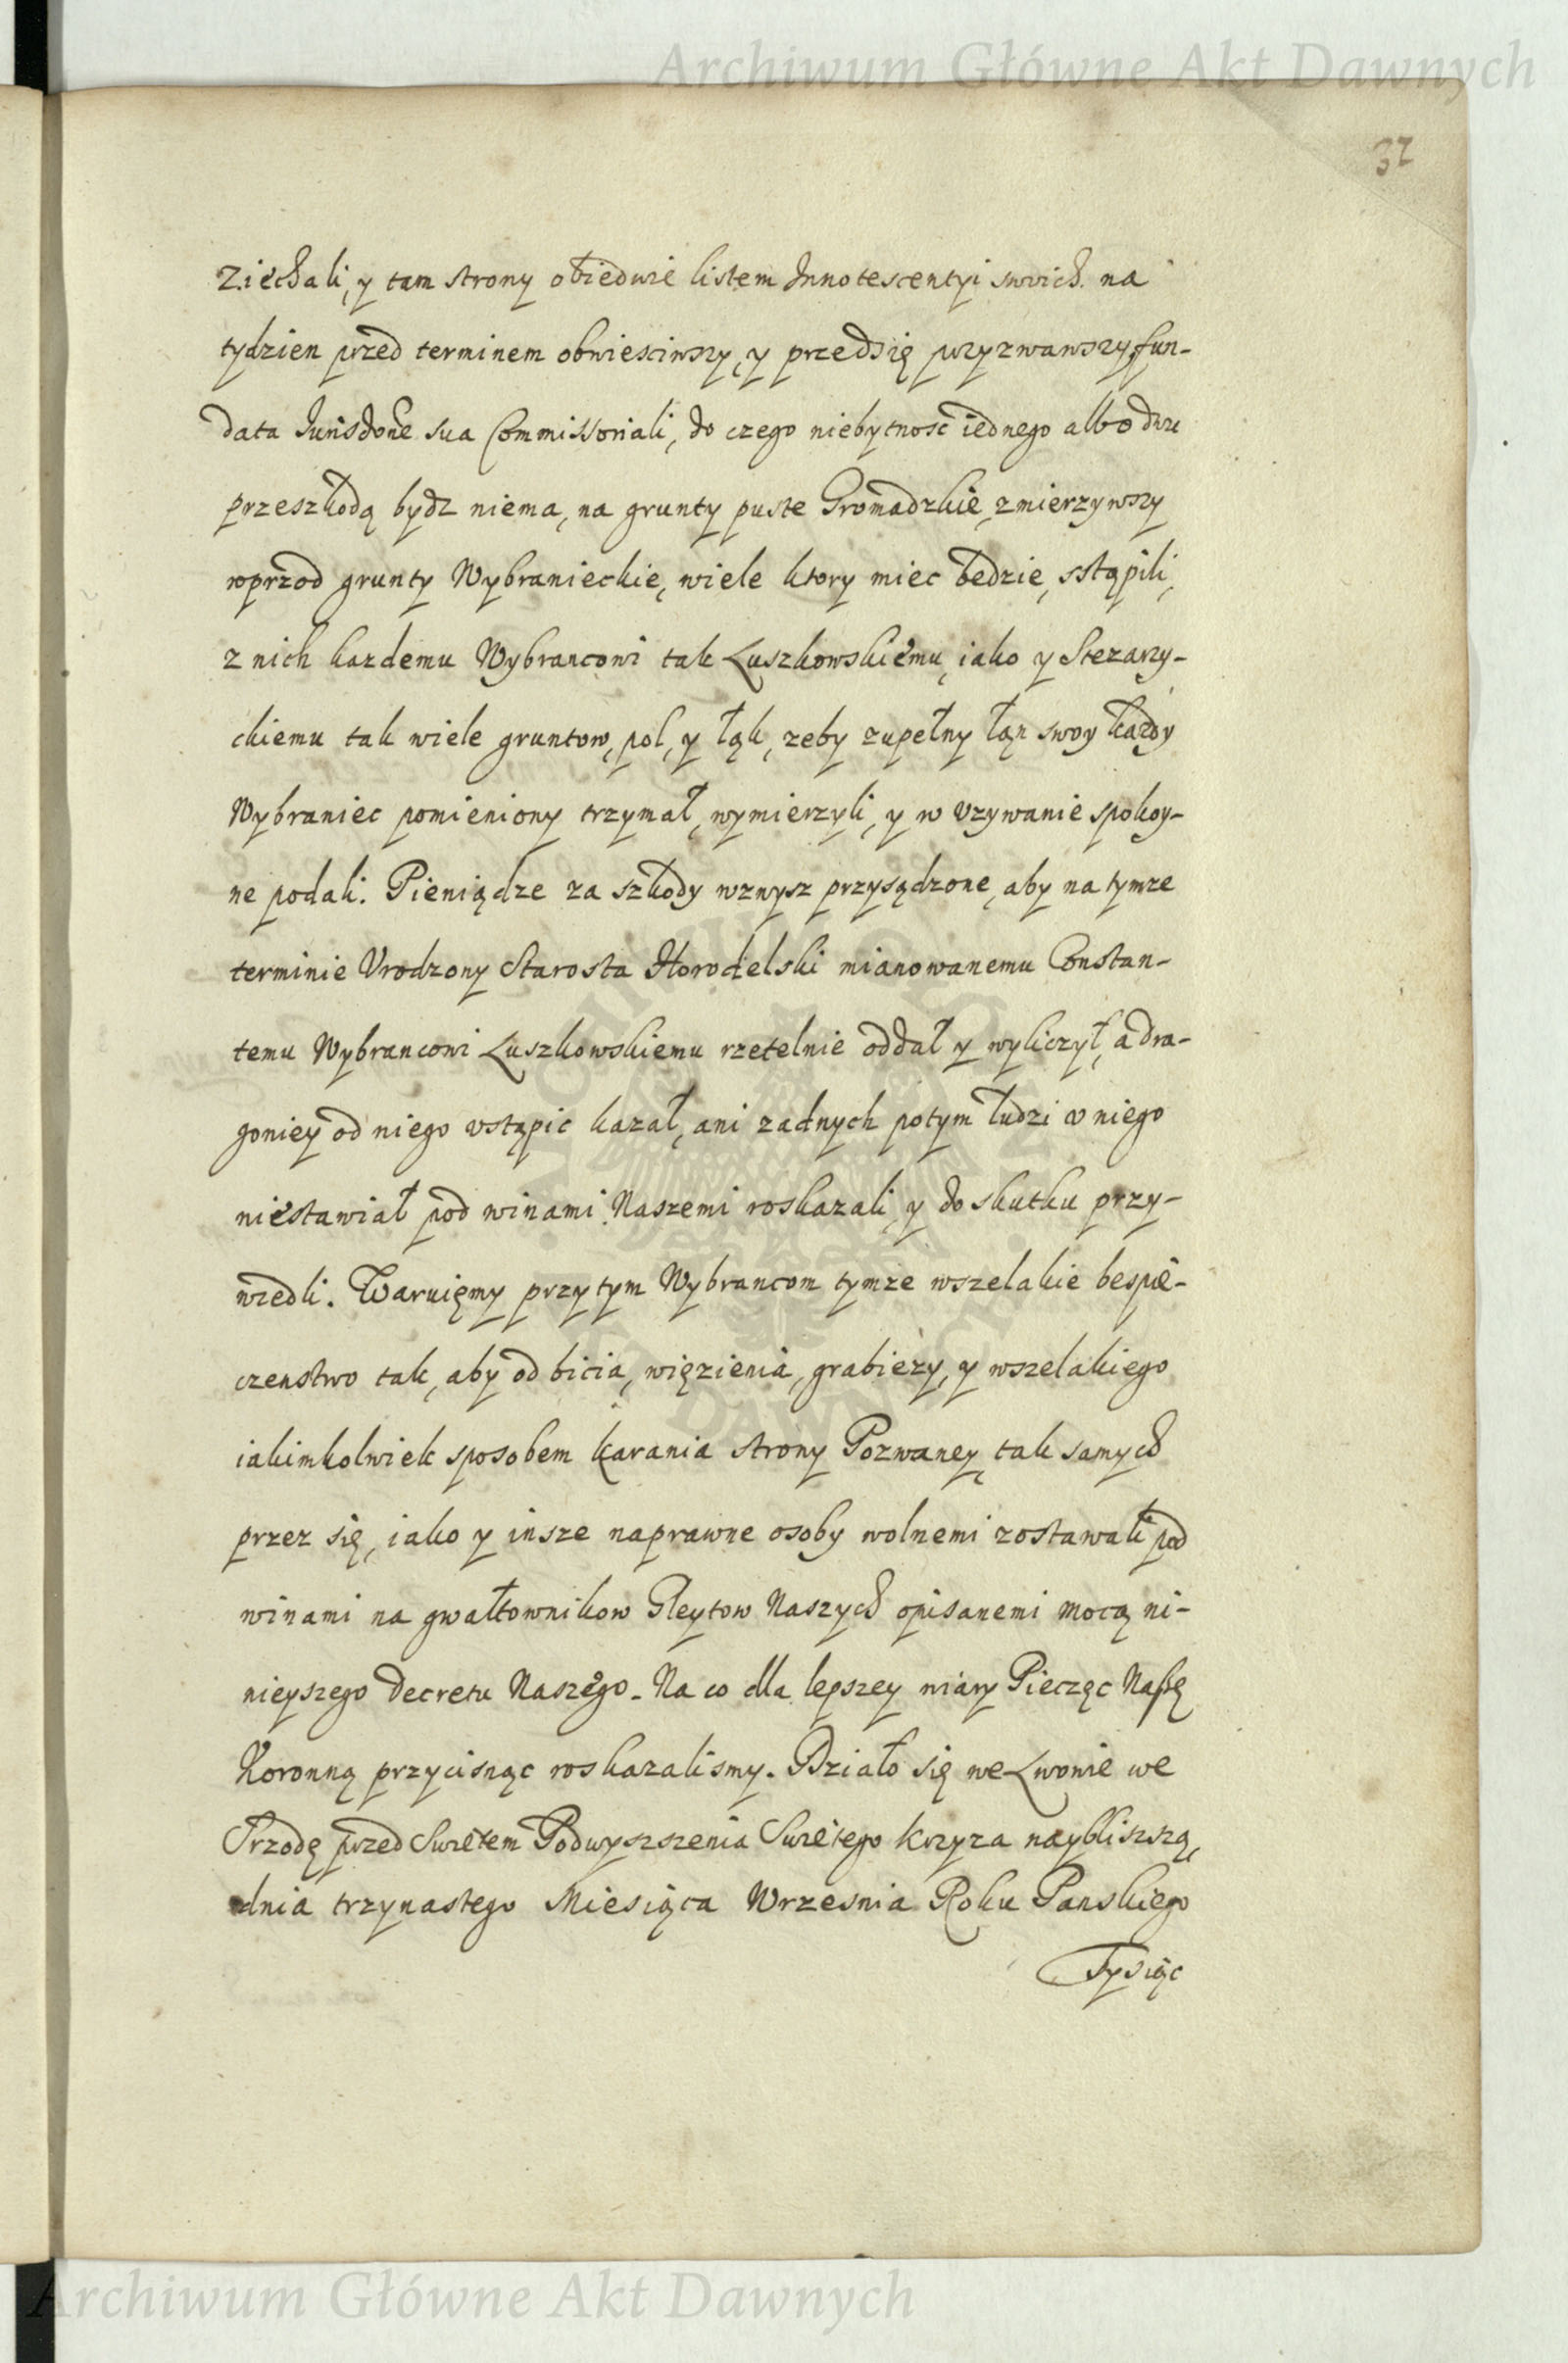 Archiwum Główne Akt Dawnych
32
Ziechali, y tam strony obiedwie listem Innotescentyi swoich na
tydzien przed terminem obwiesciwszy, y przedsię przyzwawszy, fun-
data Iurisdone sua Commissoriali, do czego niebytnosc iednego albo dwu
przeszkodą bydz niema, na grunty puste Gromadzkie, zmierzywszy
wprzod grunty Wybranieckie, wiele ktory miec będzie, sstąpili,
z nich kazdemu Wybrancowi tak Luszkowskiemu, iako y Stezarzy-
ckiemu tak wiele gruntow, pol, y łąk, zeby zupełny łan swoy kazdy
Wybraniec pomieniony trzymał, wymierzyli, y w uzywanie spokoy-
ne podali. Pieniądze za szkody wznysz przysądzone, aby na tymze
terminie Urodzony Starosta Horodelski mianowanemu Constan-
temu Wybrancowi Luszkowskiemu rzetelnie oddał y wyliczył, a dra-
goniey od niego ustąpic kazał, ani zadnych potym ludzi u niego
niestawiał pod winami Naszemi roskazali, y do skutku przy-
wiedli. Waruięmy przytym Wybrancom tymze wszelakie bespie-
czenstwo tak, aby od bicia, więzienia, grabiezy, y wszelakiego
iakimkolwiek sposobem karania strony Pozwaney, tak samych
przez się, iako y insze naprawne osoby wolnemi zostawali pod
winami na gwałtownikow Gleytow Naszych opisanemi mocą ni-
nieyszego Decretu Naszego. Na co dla lepszey wiary Pieczęc Naszę
Koronną przycisnąc roskazalismy. Działo się we Lwowie we
Srzodę przed Swiętem Podwyszszenia Swiętego Krzyza naybliszszą,
dnia trzynastego Miesiąca Wrzesnia Roku Panskiego
Tysiąc
Archiwum Główne Akt Dawnych